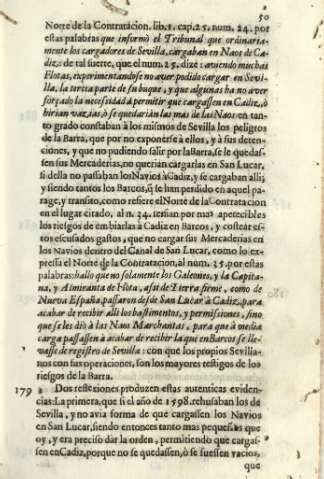 50
Norte de la Contratacion. lib. 1. cap. 25. num. 24. por
estas palabras que informò el Tribunal que ordinaria-
mente los cargadores de Sevilla, cargaban en Naos de Ca-
diz: de tal suerte, que el num. 25. dize: aviendo muchas
Flotas, experimentandose no aver podido cargar en Sevi-
lla, la tercia parte de su buque, y que algunas ha no aver
forçado la necessidad à permitir que cargassen en Cadiz, ò
birian vazias, ò se quedarian las mas de las Naos en tan-
to grado constaban à los mismos de Sevilla los peligros
de la Barra, que por no exponerse à ellos, y à sus deten-
ciones, y que no pudiendo salir por la Barra, se le quedas-
sen sus Mercaderias, no querian cargarlas en San Lucar,
si della no passaban los Navios à Cadiz, y se cargaban alli;
y siendo tantos los Barcos, q̃ se han perdido en aquel pa-
rage, y transito, como refiere el Norte de la Contratacion
en el lugar citado, al n. 24. tenian por mas apetecibles
los riesgos de embiarlas à Cadiz en Barcos, y costear es-
tos escusados gastos, que no cargar sus Mercaderias en
los Navios dentro del Canal de San Lucar, como lo ex-
pressa el Norte de la Contratacion, al num. 25. por estas
palabras: hallo que no solamente los Galeones, y la Capita-
na, y Almiranta de Flota, assi de Tierra firme, como de
Nueva España, passaron desde San Lucar à Cadiz, para
acabar de recibir alli los bastimentos, y permissiones, sino
que se les diò à las Naos Marchantas, para que à media
carga passassen à acabar de recibir la que en Barcos se lle-
vasse de registro de Sevilla: con que los propios Sevilla-
nos con sus operaciones, son los mayores testigos de los
riesgos de la Barra.
179 Dos reflexiones produzen estas autenticas eviden-
cias: La primera, que si el año de 1598. rehusaban los de
Sevilla, y no avia forma de que cargassen los Navios
en San Lucar, siendo entonces tanto mas pequeños que
oy, y era preciso dar la orden, permitiendo que cargas-
sen en Cadiz, porque no se quedassen, ò se fuessen vacios,
que